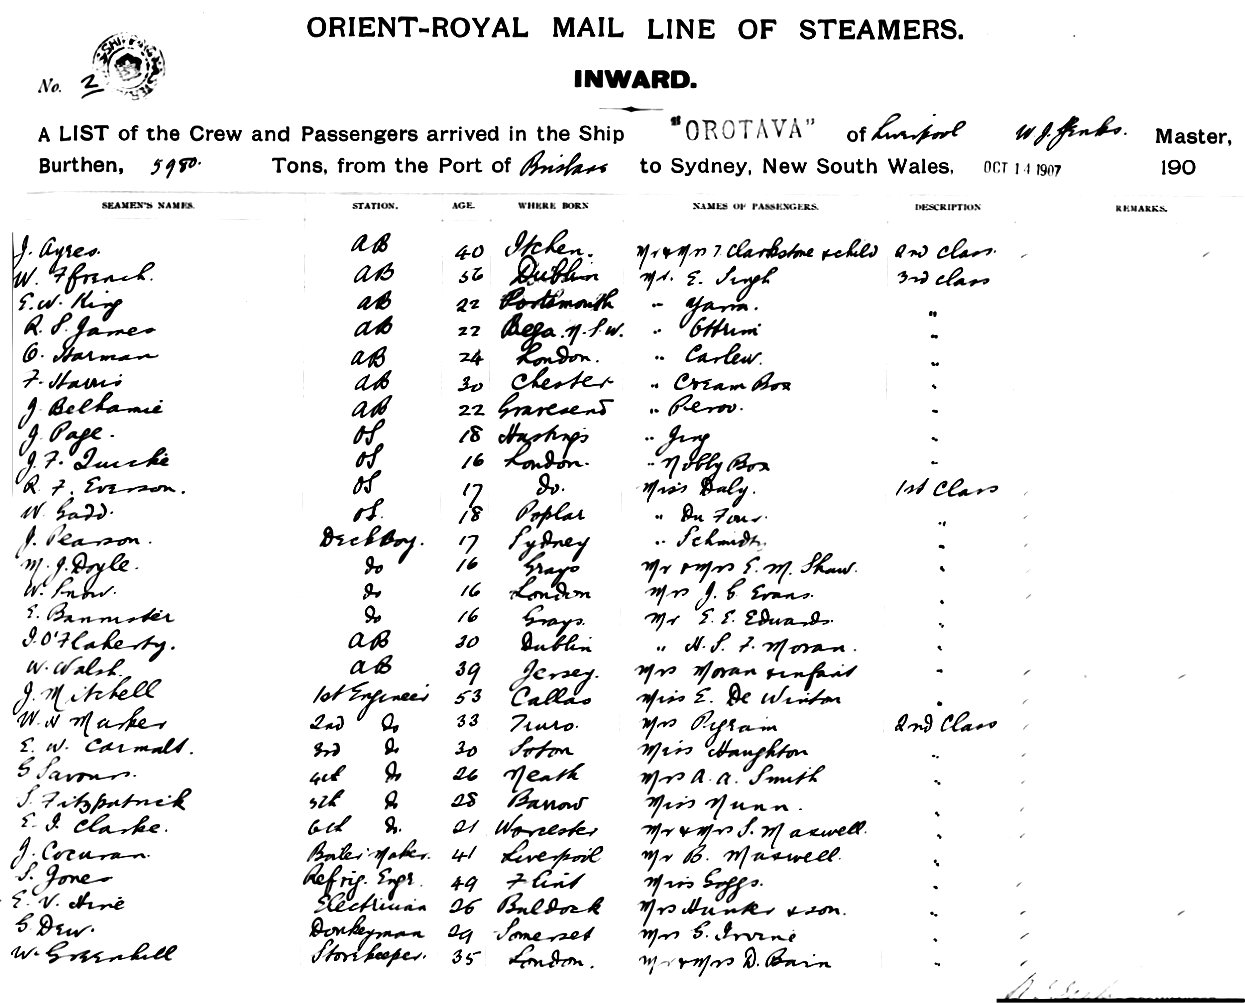 ORIENT-ROYAL MAIL LINE OF STEAMERS.
No. 2
INWARD.
A LIST of the Crew and Passengers arrived in the Ship "OROTAVA" of Liverpool W. J. Jenks. Master,
Burthen, 5980. Tons, from the Port of Brisbane to Sydney, New South Wales, OCT 14 1907 190
SEAMEN'S NAMES. STATION. AGE. WHERE BORN NAMES OF PASSENGERS. DESCRIPTION REMARKS.
J. Ayres. AB 40 Itchen. Mr & Mrs T Clarkstone & child 2nd Class.
W. Ffrench. AB 56 Dublin Mr. E. Singh 3rd Class
E. W. King AB 22 Portsmouth " Yarm. "
R. S. James AB 22 Bega. N.S.W. " Ottrim "
O. Harman AB 24 London. " Carlew. "
F. Harris AB 30 Chester " Cream Box "
J. Belhamie AB 22 Gravesend " Perov. "
J. Page. OS 18 Hastings " Jing "
J. F. Quicke OS 16 London. " Nobby Box "
R. F. Everson. OS 17 do. Miss Daly. 1st Class
W. Gadd. OS. 18 Poplar " Du Four. "
J. Pearson. Deck Boy. 17 Sydney " Schmidt. "
M. J. Doyle. do 16 Grays Mr & Mrs E. M. Shaw. "
W. Snow. do 16 London Mrs J. E. Evans. "
E. Bannister do 16 Grays. Mr E. E. Edwards. "
J. O'Flaherty. AB 30 Dublin " H. S. F. Moran. "
W. Walsh. AB 39 Jersey. Mrs Moran & infant "
J. Mitchell 1st Engineer 53 Callao Miss E. De Winton "
W. N Marker 2nd do 33 Truro. Mrs Pegram 2nd Class
E. W. Carmalt. 3rd do 30 Soton Miss Haughton "
G Savours. 4th do 26 Neath Mrs A. A. Smith "
S. Fitzpatrick 5th do 28 Barrow Miss Nunn. "
E. J. Clarke. 6th do. 21 Worcester Mr & Mrs S. Maxwell. "
J. Cocuran. Boiler Maker. 41 Liverpool Mr B. Maxwell. "
S. Jones Refrig. Engr. 49 Flint Miss Goggs. "
E. V. Hine Electrician 26 Baldock Mrs Hunks & son. "
G. Dew. Donkeyman 29 Somerset Mrs G. Irvine "
W. Greenhill Storekeeper. 35 London. Mr & Mrs D. Bain "